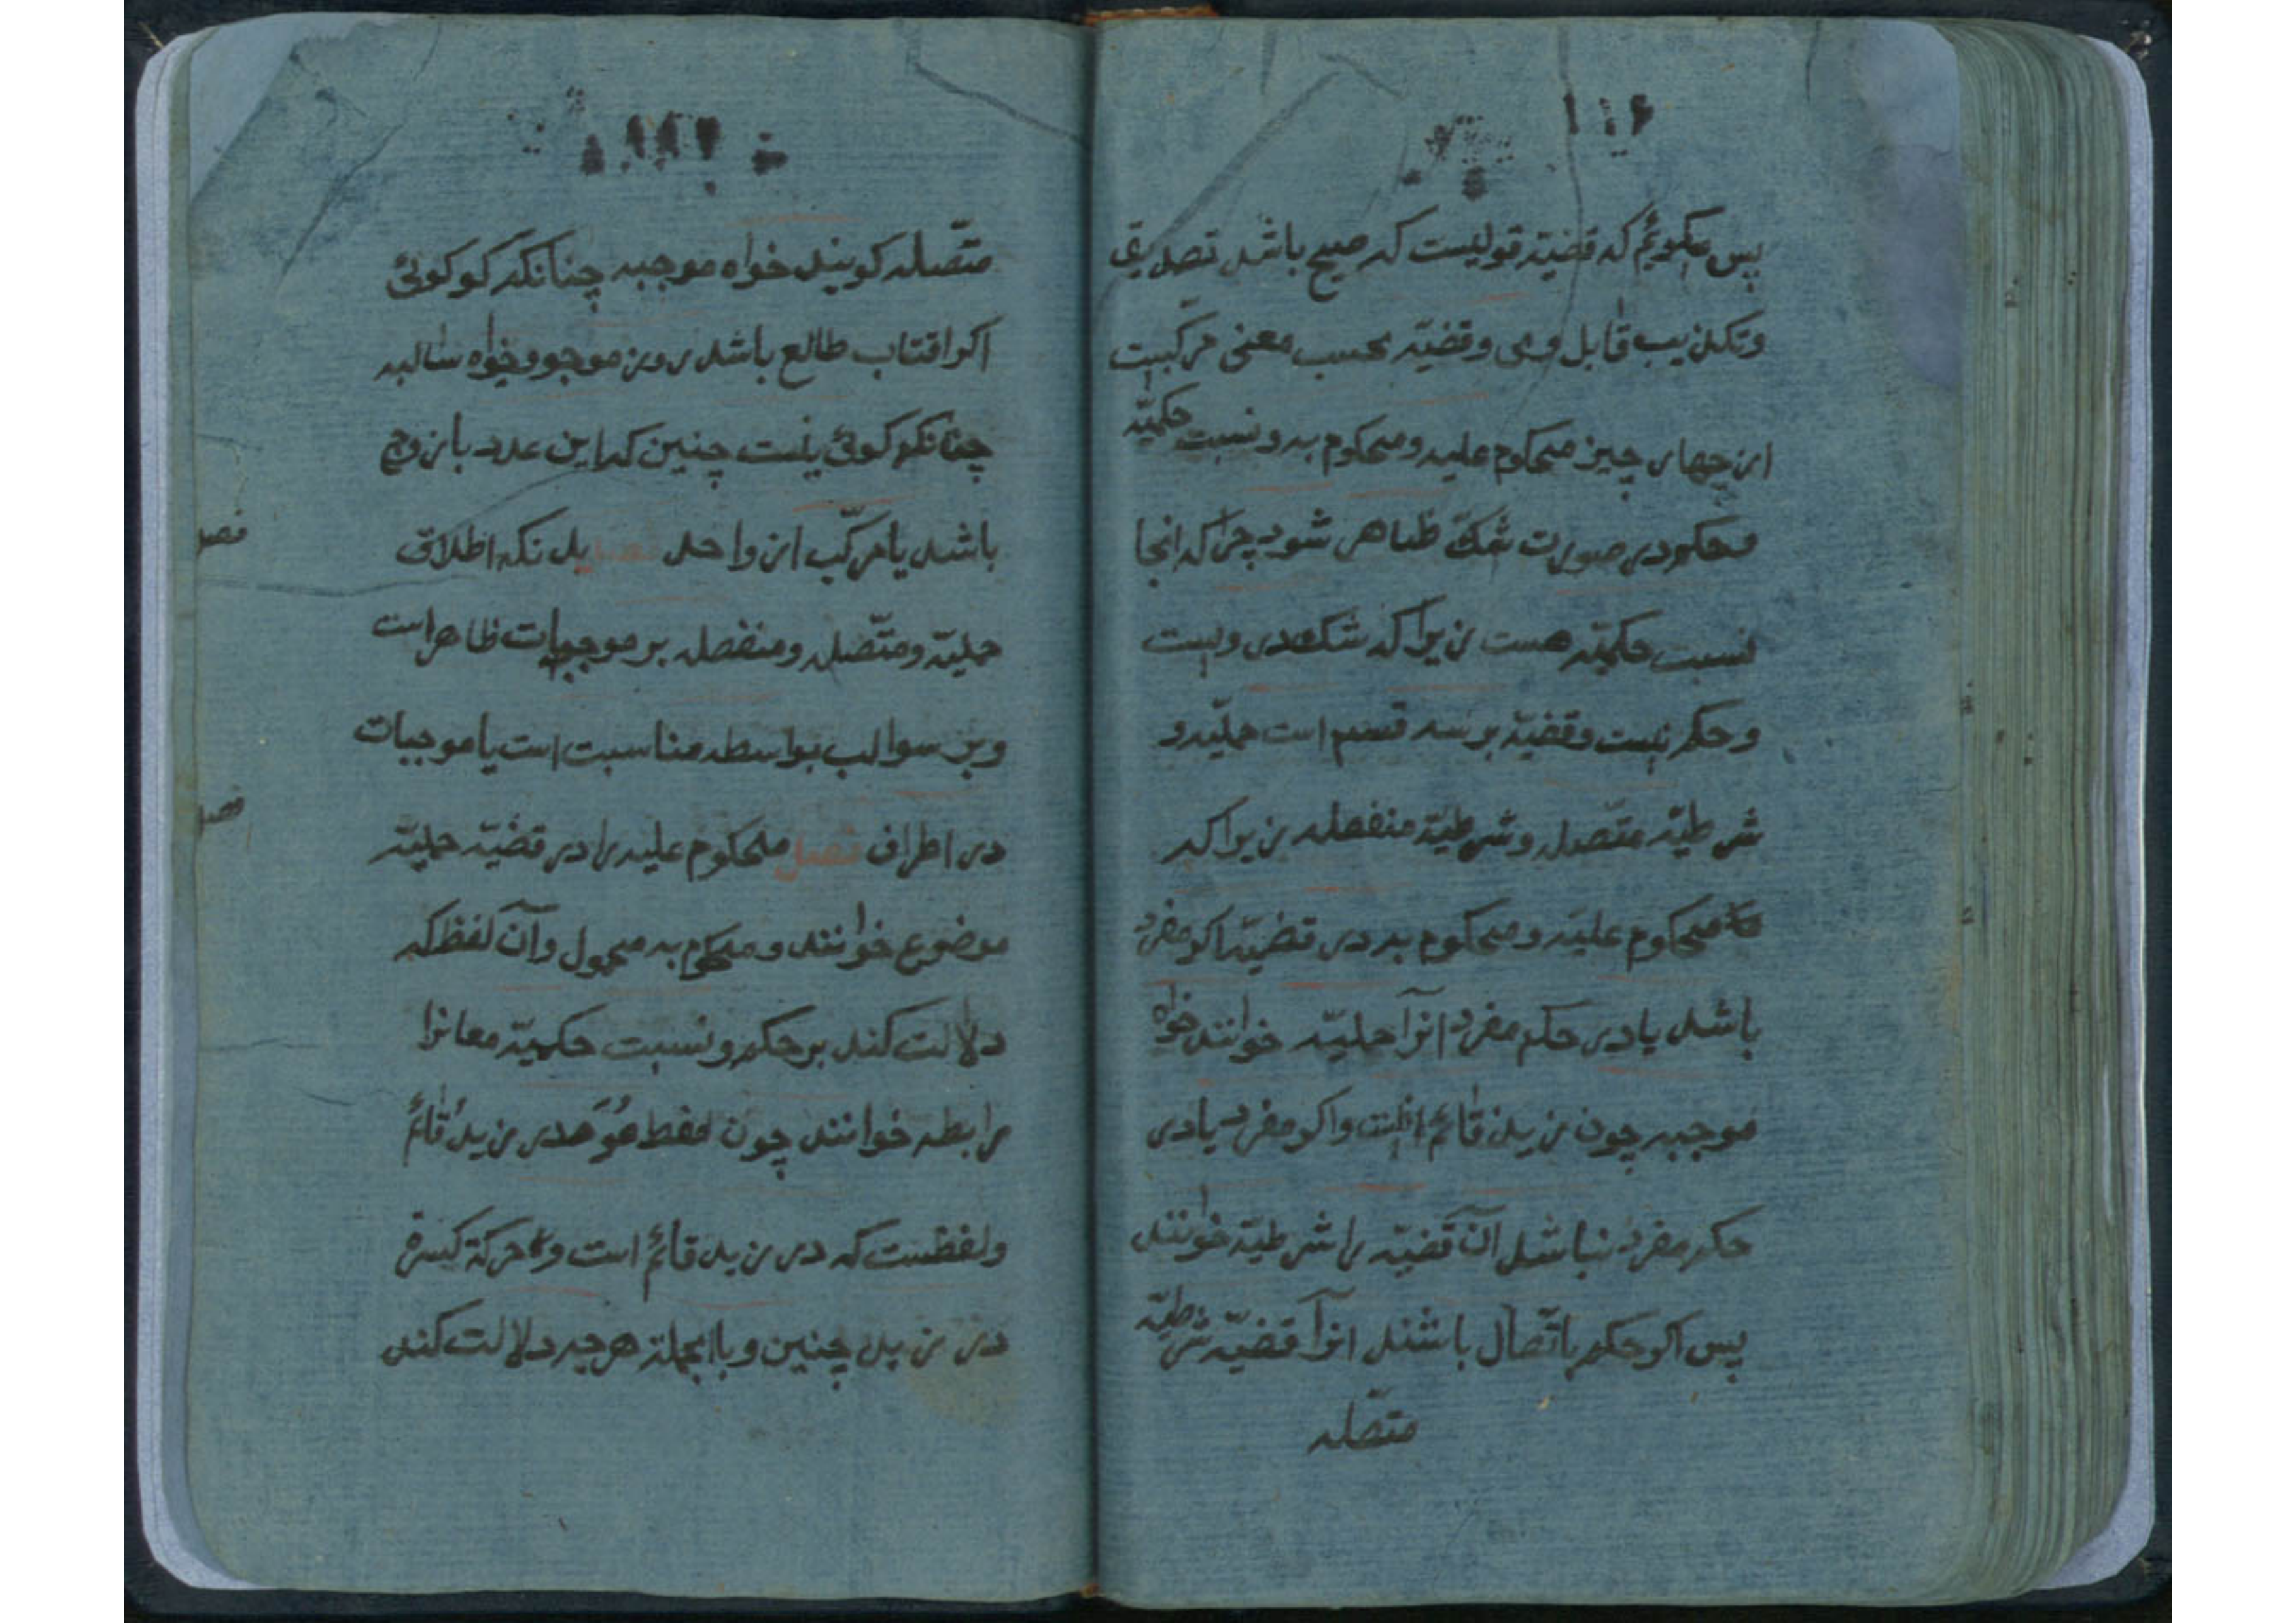 ۱۱۶
پس میگوئیم که قضیّه قولیست که صحیح باشد تصدیق
وتکذیب قابل وی وقضیّه بحسب معنی مرکّبیت
از چهار چیز محکوم علیه و محکوم به و نسبت حکمیّه
وحکم در صورت شک ظاهر شود چرا که انجا
نسبت حکمیّه هست زیرا که شک در ویست
وحکم نیست وقضیّه بر سه قسم است حملیّه و
شرطیّه متّصله وشرطیّه منفصله زیرا که
محکوم علیه و محکوم به در قضیّه اکر مفرد
باشد یا در حکم مفرد انرا حملیّه خوانند خواه
موجبه چون زید قائم است واکر مفرد یا در
حکم مفرد نباشد آن قضیّه را شرطیّه خوانند
پس اکر حکم باتّصال باشند انرا قضیّه شرطیّه
متّصله
متّصله کویند خواه موجبه چنانکه کوئی
اکر افتاب طالع باشد روز موجود وخواه سالبه
چنانکه کوئی نیست چنین که این عدد یا زوج
باشد یا مرکّب از واحد فصل بدنکه اطلاق
حملیّه ومتّصله ومنفصله بر موجبات ظاهر است
وبر سوالب بواسطه مناسبت است یا موجبات
در اطراف فصل محکوم علیه را در قضیّه حملیّه
موضوع خوانند و محکوم به محمول وآن لفظ که
دلالت کند بر حکم و نسبت حکمیّه معا نرا
رابطه خوانند چون لفظ هُوَ در زید قائم
ولفظست که در زید قائم است و حرکة کسرة
در زید چنین و باالجملة هرچه دلالت کند
فصل
فصل